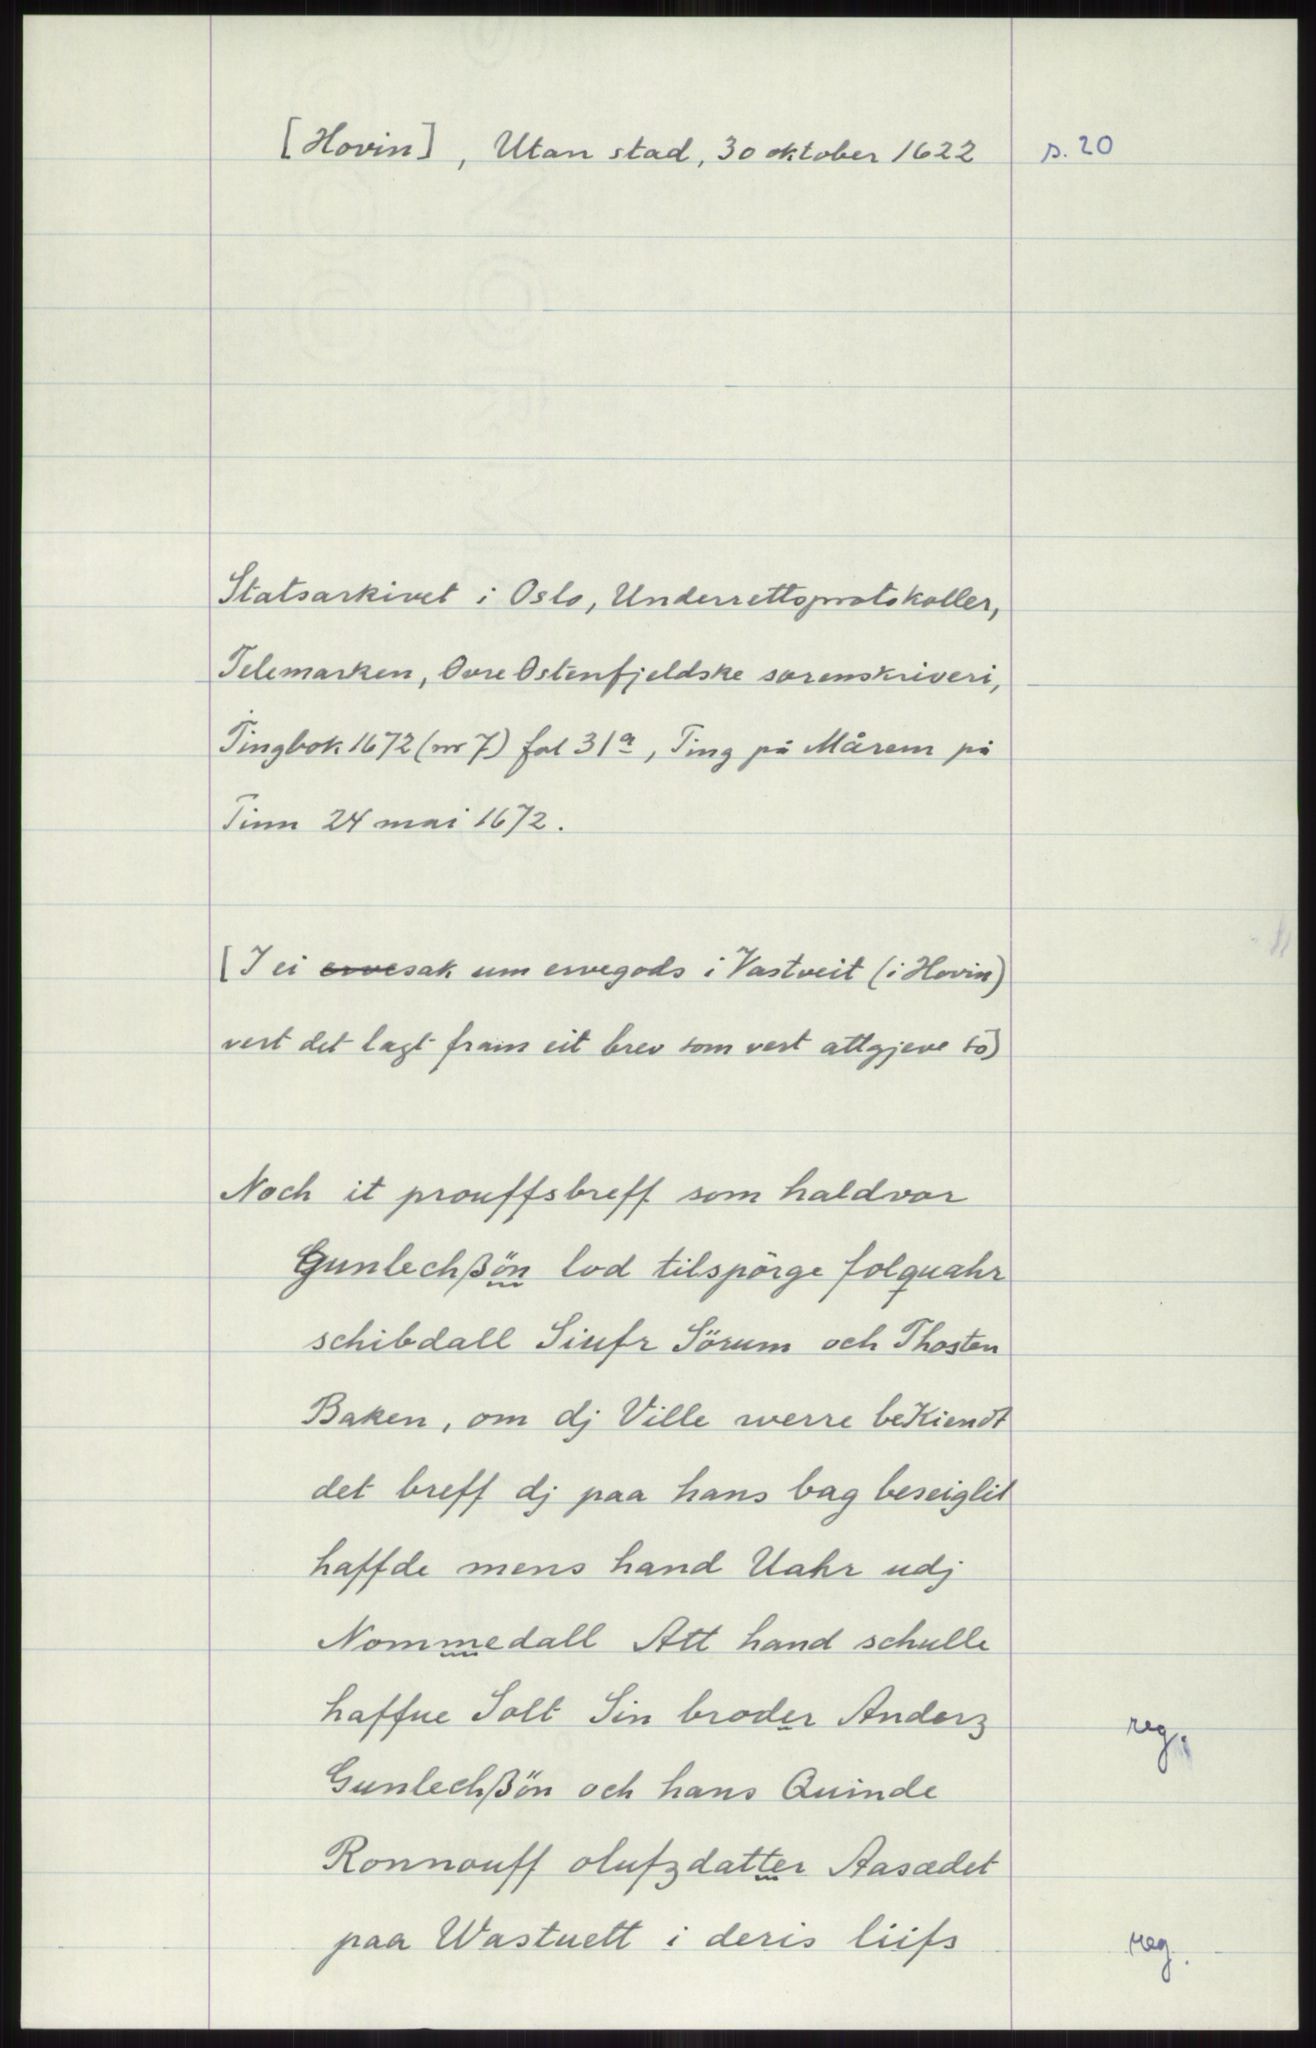 [Hovin], Utan stad, 30 oktober 1622 s. 20
Statsarkivet i Oslo, Underrettsprotokoller,
Telemarken, Øvre Østenfjeldske sorenskriveri,
Tingbok 1672 (nr 7) fol 31a, Ting på Mårem på
Tinn 24 mai 1672.
[I ei ervesak um ervegods i Vastveit (i Hovin)
vert det lagt fram eit brev som vert attgjeve so]
Noch it prouffsbreff som haldvor
Gunlechßön lod tilspörge folquahr
schibdall Siufr Sörum och Thosten
Baken, om dj Ville werre beKiendt
det breff dj paa hans bag beseiglit
haffde mens hand Uahr udj
Nommedall Att hand schulle
haffue Solt Sin broder Anderz reg.
Gunlechßön och hans Quinde
Ronnouff olufzdatter Aasædet
paa Wastuett i deris liifs reg.